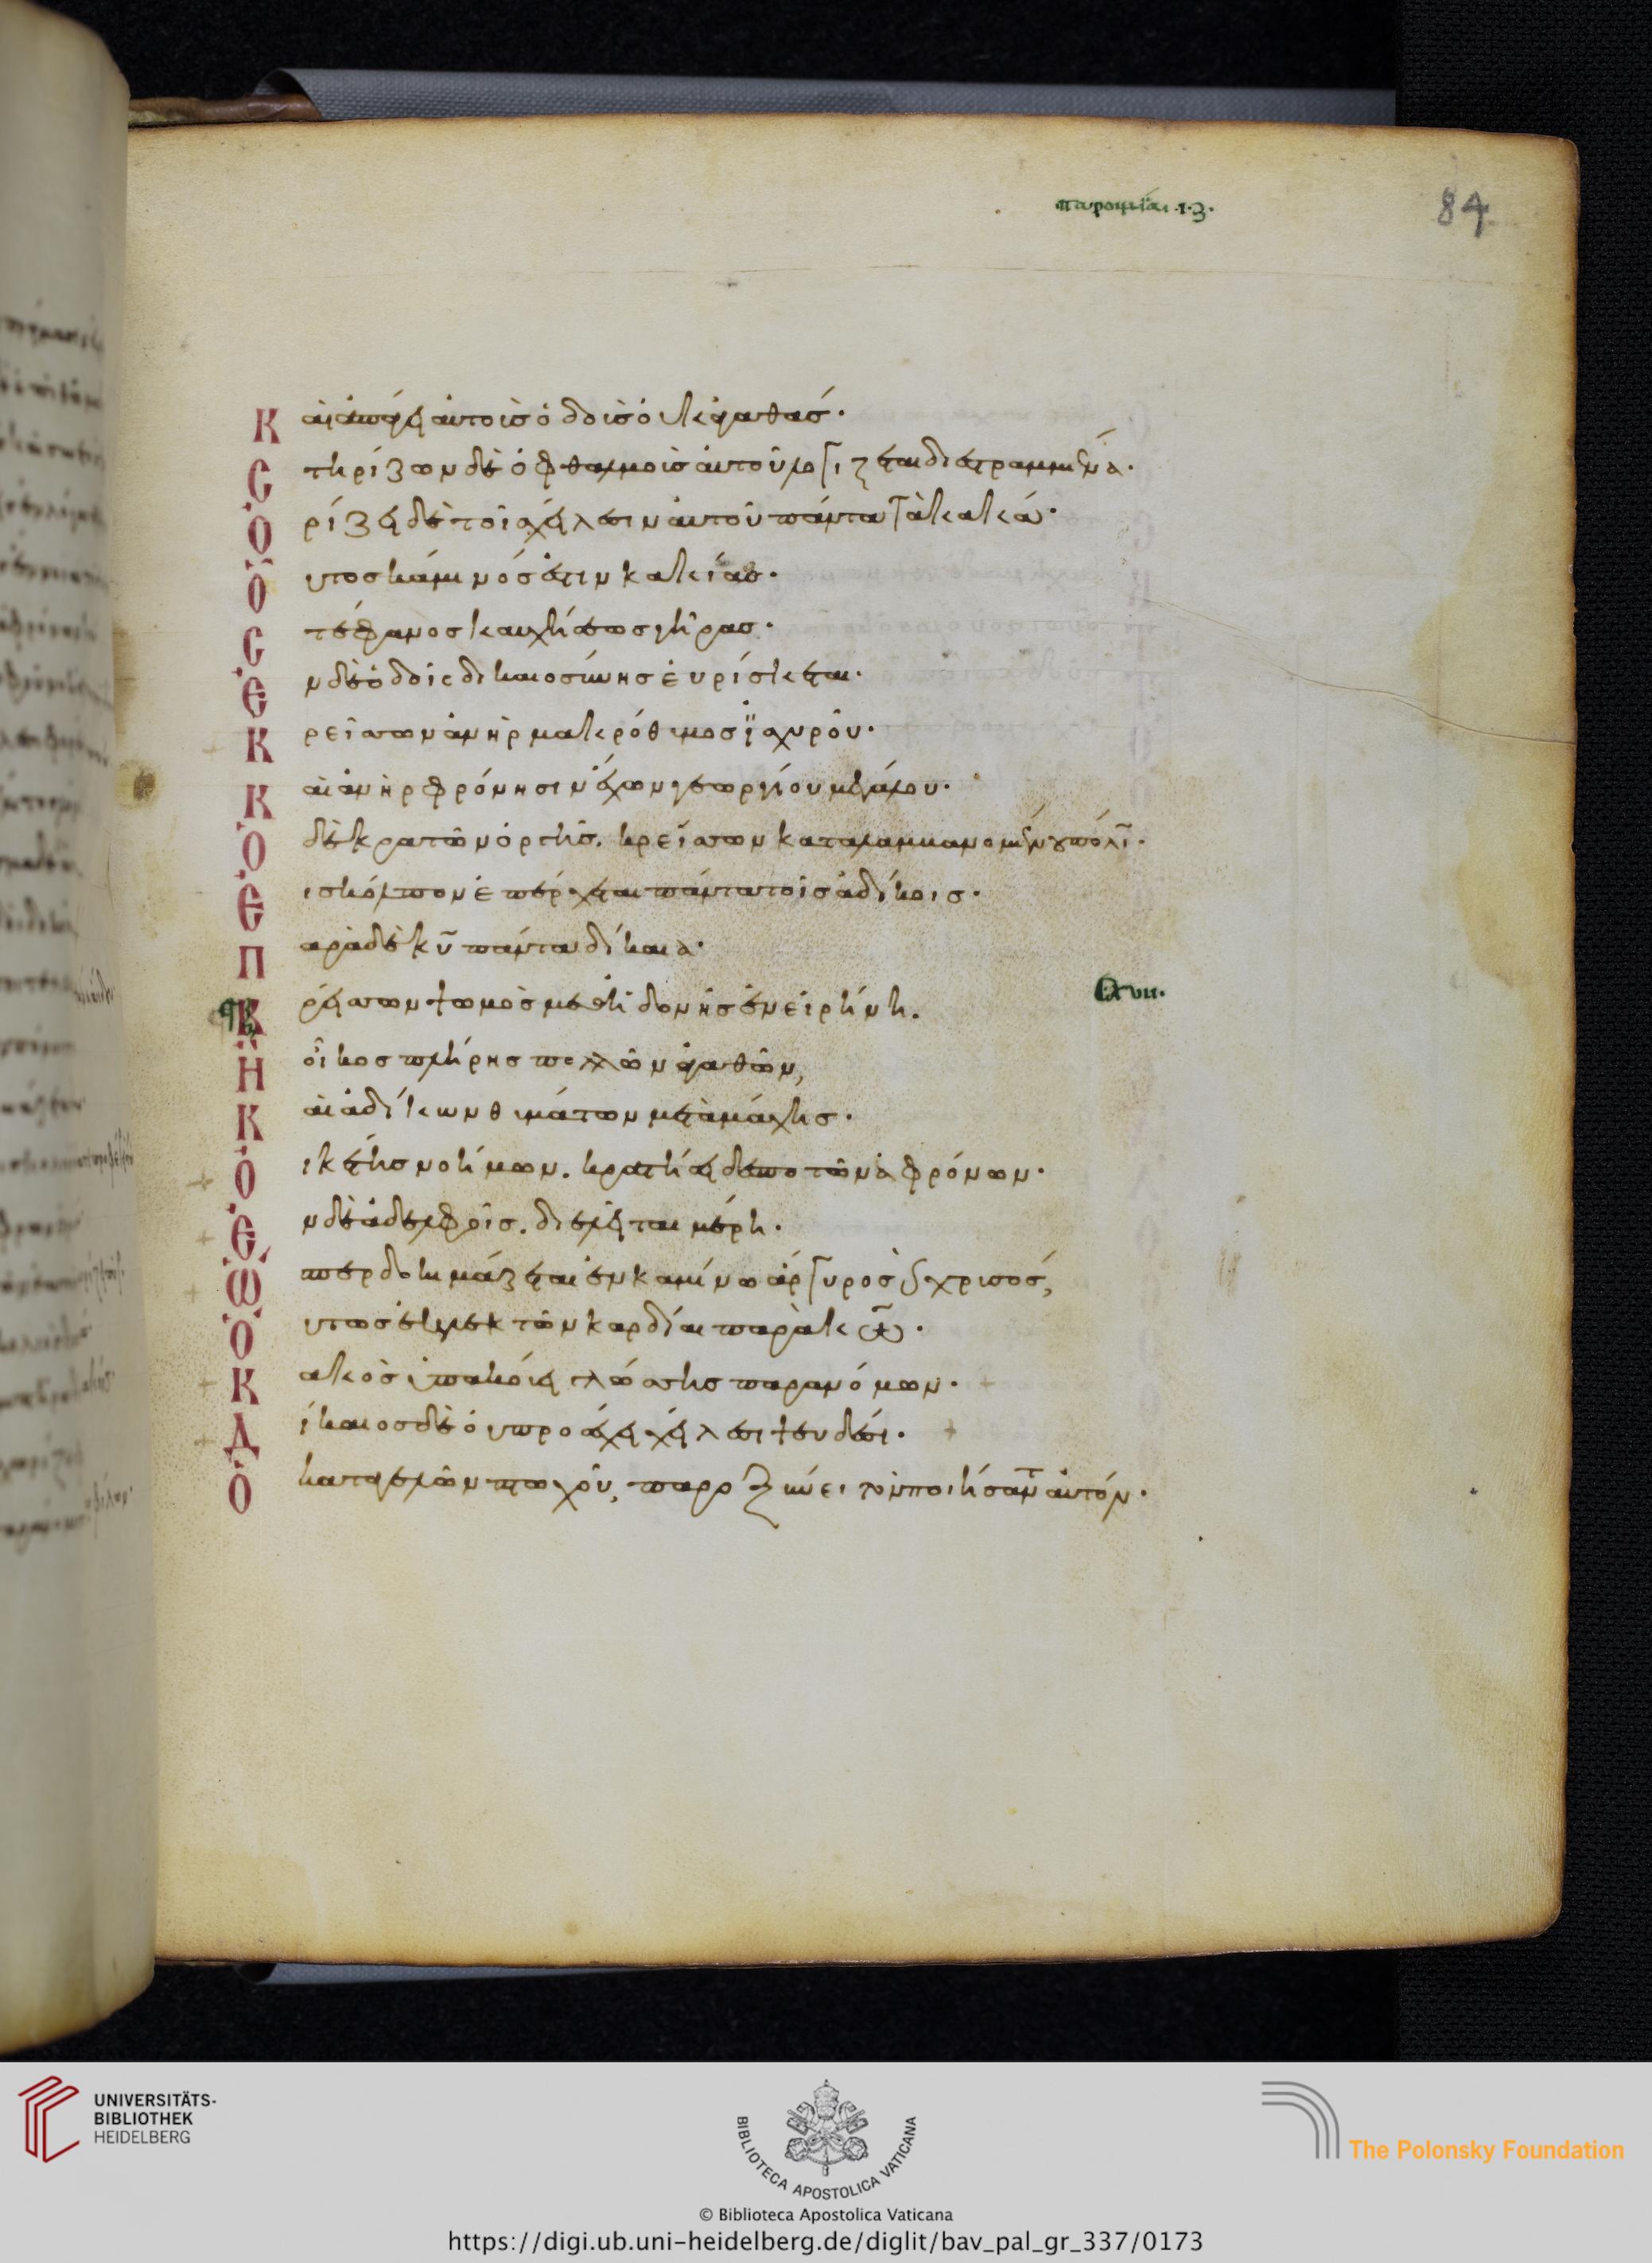 παροιμίαι ·ι·ζ·
84
Καὶ ἀπάγει αὐτοὺς ὁδοὺς οὐκ ἀγαθάς·
Στηρίζων δὲ ὀφθαλμοὺς αὐτοῦ λογίζεται διεστραμμένα·
Ὁρίζει δὲ τοῖς χείλεσιν αὐτοῦ πάντα τὰ κακά·
Οὗτος κάμινός ἐστιν κακίας·
Στέφανος καυχήσεως γῆρας·
Ἐν δὲ ὁδοῖς δικαιοσύνης εὑρίσκεται·
Κρείσσων ἀνὴρ μακρόθυμος ἰσχυροῦ·
Καὶ ἀνὴρ φρόνησιν ἔχων γεωργίου μεγάλου·
Ὁ δὲ κρατῶν ὀργῆς. κρείσσων καταλαμβανομένου πόλιν·
Εἰς κόλπον ἐπέρχεται πάντα τοῖς ἀδίκοις·
Παρὰ δὲ κυ πάντα δίκαια·
Κρείσσων ψωμὸς μεθ' ἡδονῆς ἐν εἰρήνη.
XVII.
Ἢ οἶκος πλήρης πολλῶν ἀγαθῶν,
Καὶ ἀδίκων θυμάτων μετὰ μάχης·
Οἰκέτης νοήμων. κρατήσει δεσποτῶν ἀφρόνων·
Ἐν δὲ ἀδελφοῖς. διελεῖται μέρη·
Ὥσπερ δοκιμάζεται ἐν καμίνω ἄργυρος καὶ χρυσός,
Οὕτως ἐκλεκταὶ καρδίαι παρὰ κω·
Κακὸς ὑπακούει γλώσσης παρανόμων·
Δίκαιος δὲ οὐ προσέχει χείλεσι ψευδέσι·
Ὁ καταγελῶν πτωχοῦ, παροξύνει τὸν ποιήσαντα αὐτόν·
UNIVERSITÄTS-
BIBLIOTHEK
HEIDELBERG
BIBLIOTECA APOSTOLICA VATICANA
The Polonsky Foundation
© Biblioteca Apostolica Vaticana
https://digi.ub.uni-heidelberg.de/diglit/bav_pal_gr_337/0173